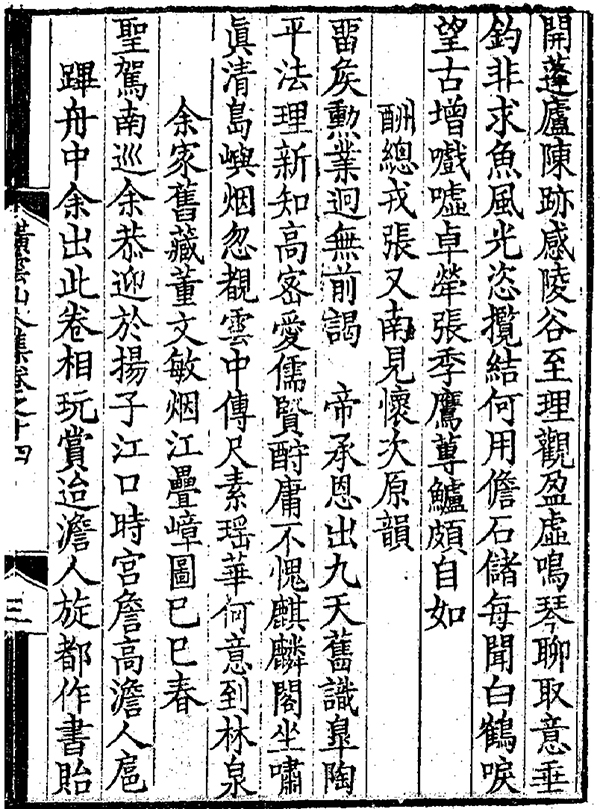 開蓬廬陳跡感陵谷至理觀盈虛鳴琴聊取意垂
釣非求魚風光恣攬結何用儋石儲每聞白鶴唳
望古增嚱噓卓犖張季鷹蓴鱸頗自如
酬總戎張又南見懷次原韻
畱矦勲業迥無前謁　帝承恩出九天舊識臯陶
平法理新知高密愛儒賢酧庸不愧麒麟閣坐嘯
眞清島嶼烟忽覩雲中傳尺素瑶華何意到林泉
余家舊藏董文敏烟江疊嶂圖已巳春
聖駕南巡余恭迎於揚子江口時宮詹高澹人扈
蹕舟中余出此卷相玩賞迨澹人旋都作書貽
橫雲山人集卷之十四
三